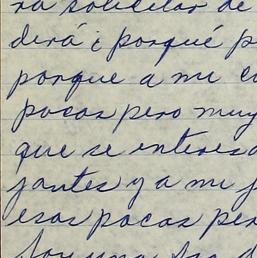 ra solicitar de
dirá ¿ porqué p
porque a mi e
pocas pero muy
que se interesa
jantes y a mi j
esas pocas per
Soy una